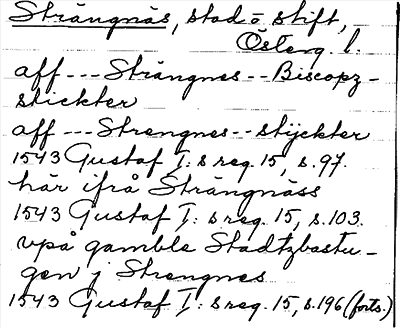 Strängnäs, stad o. stift,
Österg. l.
aff --- Strängnes -- Biscopz-
stickter
aff --- Strengnes -- stÿckter
1543 Gustaf I:s reg. 15, s. 97.
här ifrå Strängnäss
1543 Gustaf I:s reg. 15, s. 103.
vpå gamble Stadtzbastu-
gen j Strengnes
1543 Gustaf I:s reg. 15, s. 196 (forts.)